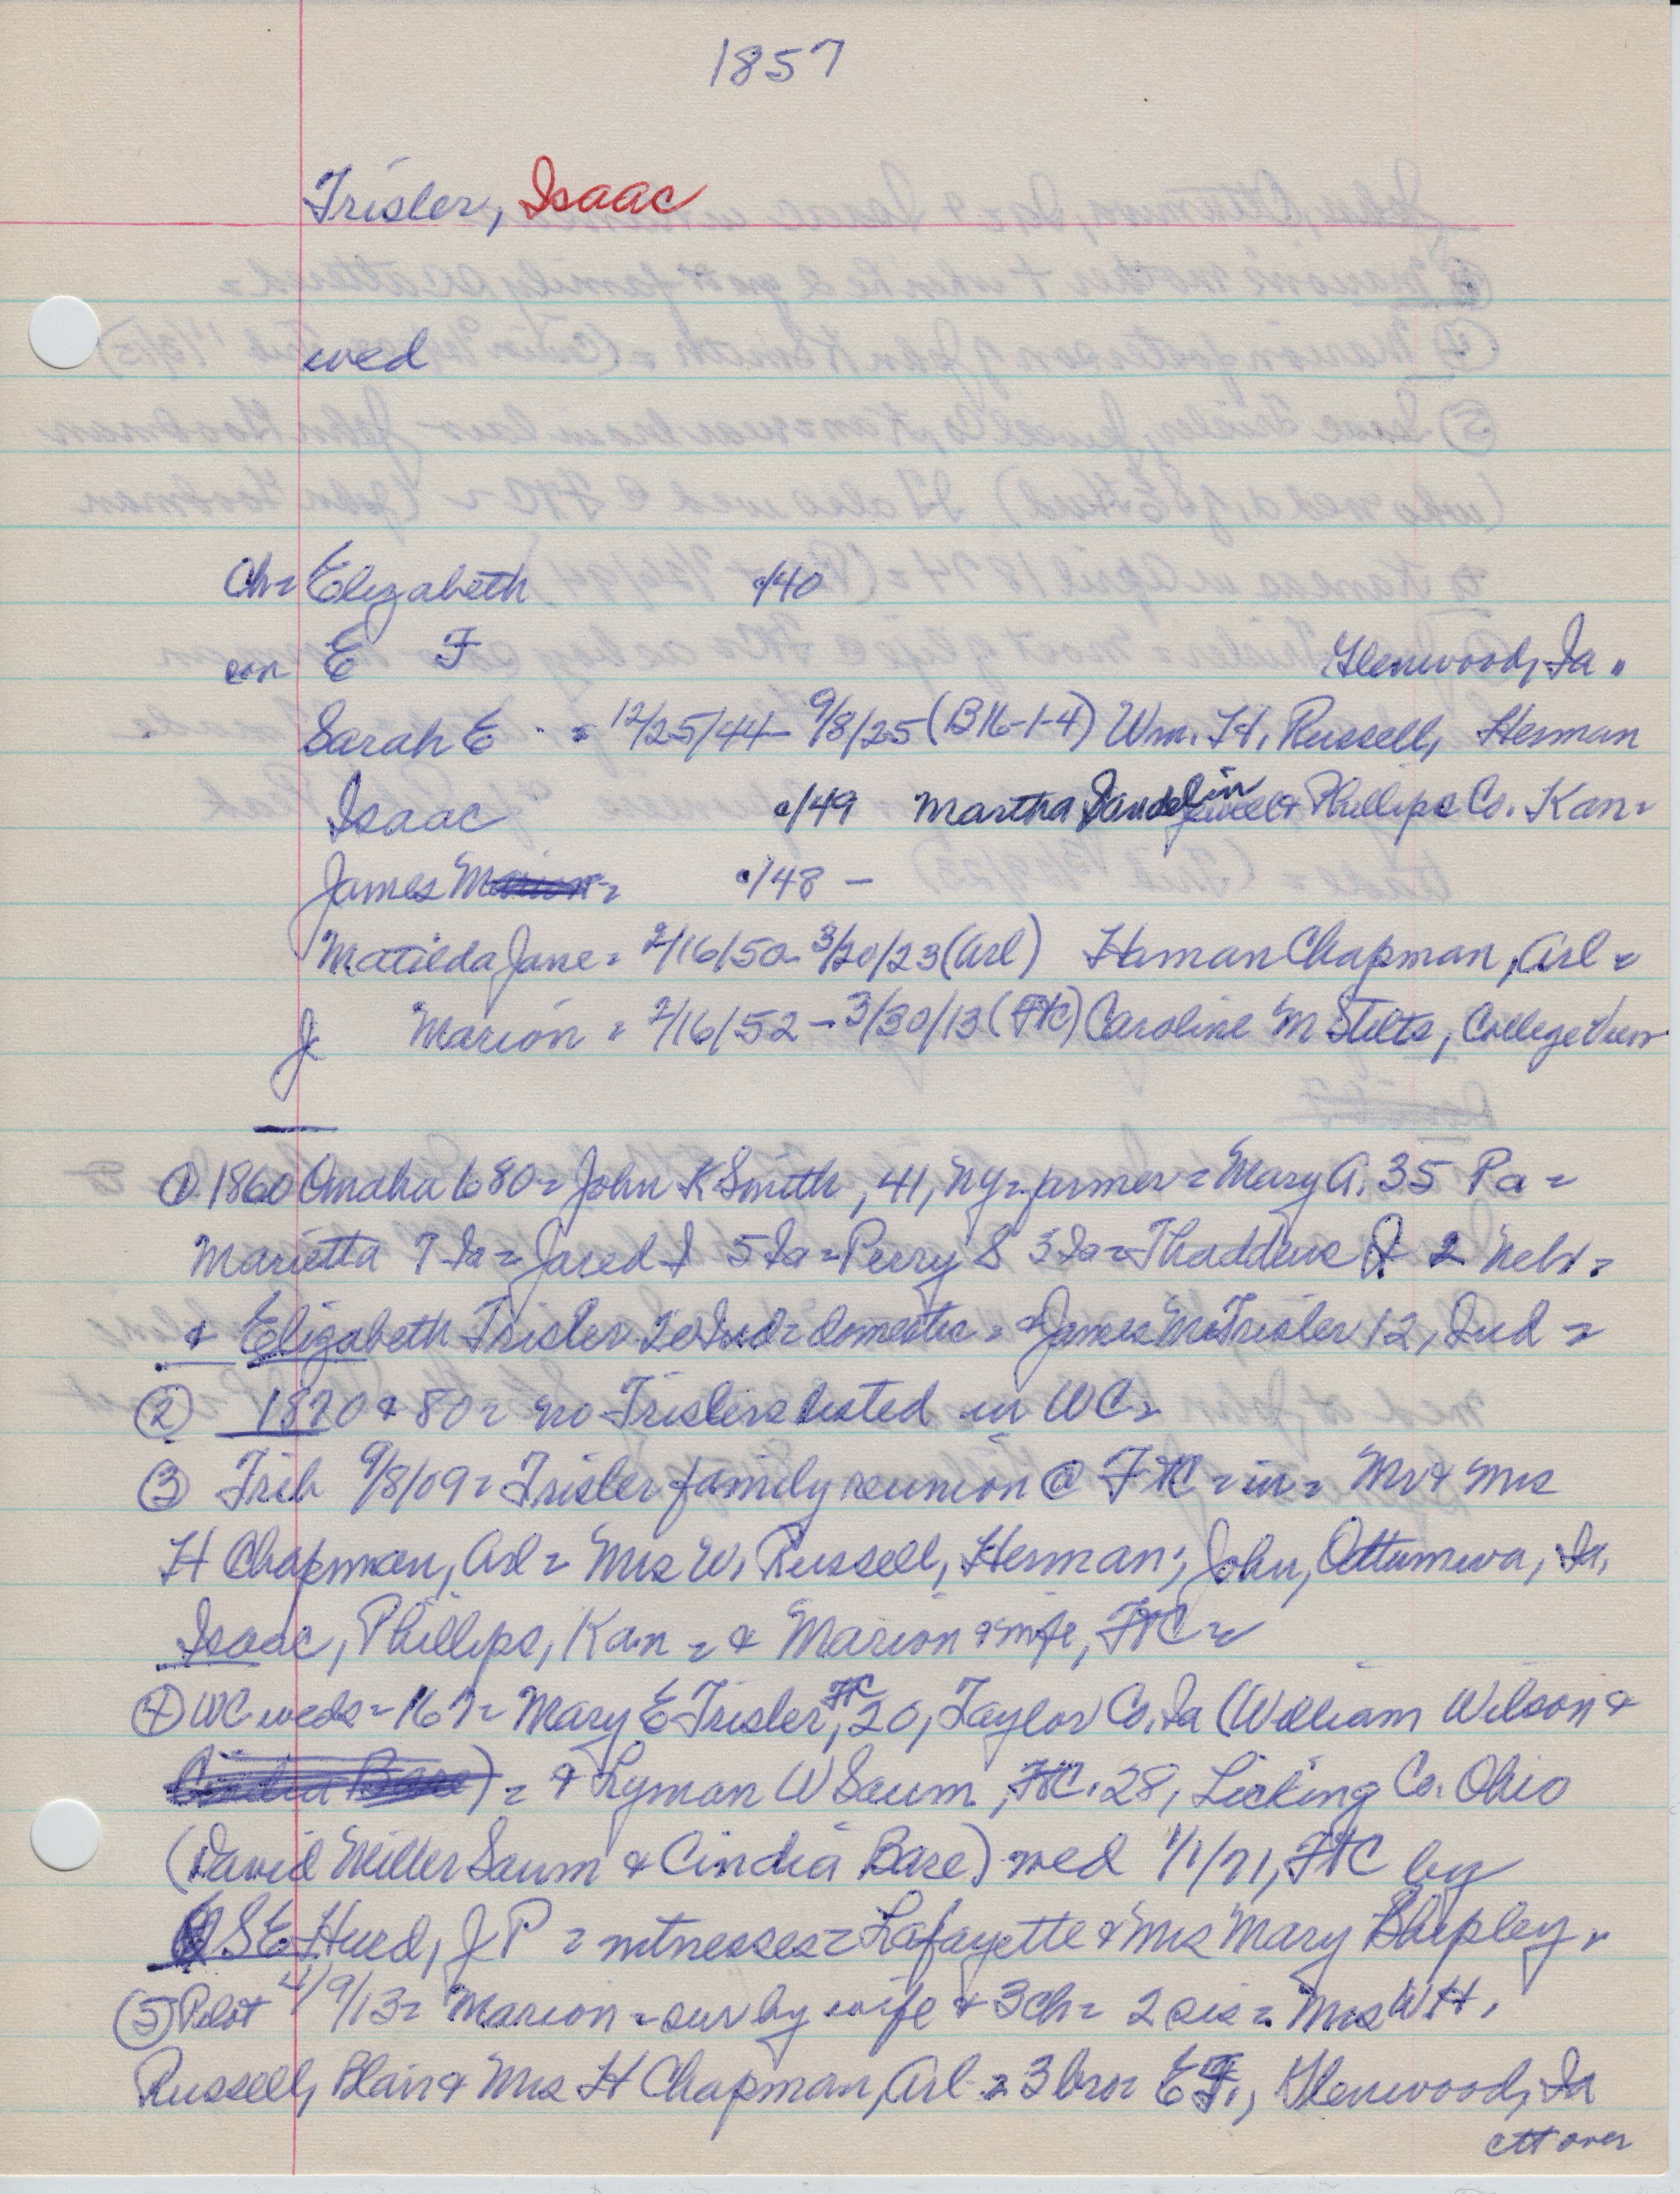 1857
Trisler, Isaac
wed
Ch= Elizabeth c/40
con E F Glenwood, Ia.
Sarah E = 12/25/44- 9/8/25 (B16-1-4) Wm. H. Russell, Herman
Isaac c/49 Martha Jewell & Phillips Co. Kan=
James M= c/48 -
Matilda Jane = 2/16/50- 3/20/23 (Arl) Haman Chapman, Arl =
J Marion = 2/16/52 - 3/30/13 (FTC) Caroline M Stilts, College View
① 1860 Omaha 680 = John K Smith, 41, NY= farmer = Mary A. 35 Pa =
Marietta 7 Ia = Jared I 5 Ia = Perry S 3 Ia = Thaddeus 2 Neb. =
& Elizabeth Trisler 20 Ind = domestic = & James M Trisler 12, Ind =
② 1870 & 80 = no Trislers listed in WC=
③ Trib 9/8/09 = Trisler family reunion @ FTC = in = Mr & Mrs
H Chapman, Arl = Mrs W. Russell, Herman; John, Ottumwa, Ia.
Isaac, Phillips, Kan = & Marion & wife, FTC =
④ WC weds = 167 = Mary E Trisler, FTC, 20, Taylor Co. Ia (William Wilson &
Cindia Base) = & Lyman W Saum, FTC. 28, Licking Co. Ohio
(David Miller Saum & Cindia Base) wed 1/1/71, FTC by
S E Hurd, J P = witnesses = Lafayette & Mrs Mary Shepley.
⑤ Pilot 4/9/13 = Marion = sur by wife & 3 ch = 2 sis = Mrs W H.
Russell, Blair & Mrs H Chapman, Arl = 3 bro= E F., Glenwood, Ia
over